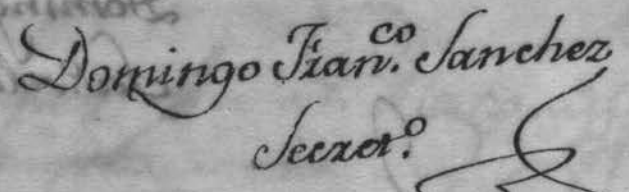 Domingo Fran.co Sanchez
Secret.o